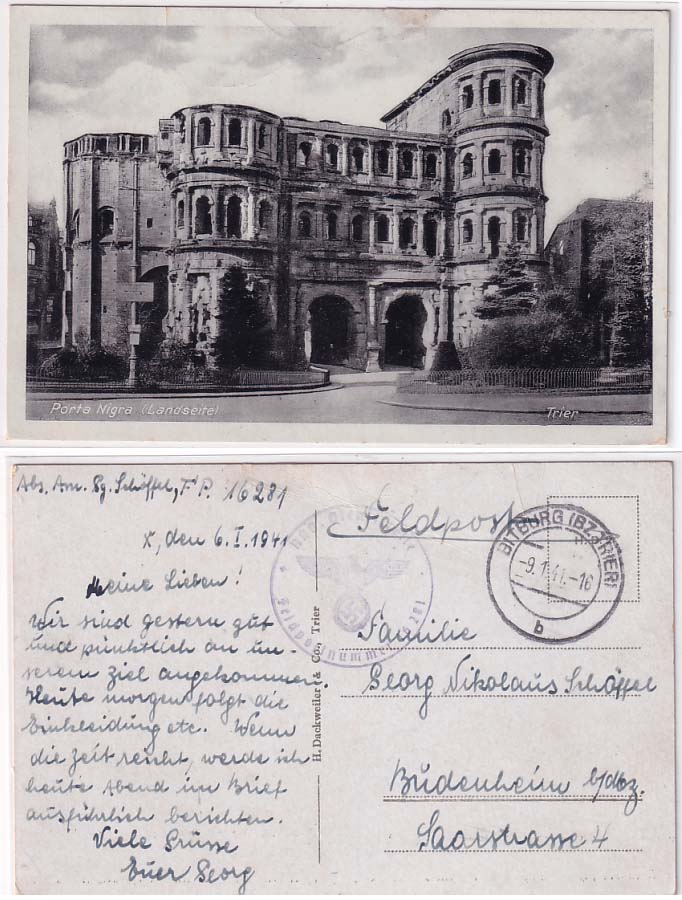 Porta Nigra (Landseite)
Trier
Abs. Arm. Sg. Schöffel, F'P. 16281
Feldpost
X, den 6. I. 1941
BITBURG (BZ. TRIER)
-9.1.41.-16
b
Feldpostnummer 16 281
Meine Lieben!
Wir sind gestern gut
und pünktlich an un-
serem Ziel angekommen.
Heute morgen folgt die
Einkleidung etc. Wenn
die Zeit reicht, werde ich
heute Abend im Brief
ausführlich berichten.
Viele Grüsse
Euer Georg
H. Dackweiler & Co., Trier
Familie
Georg Nikolaus Schöffel
Budenheim b/Mz.
Saarstrasse 4